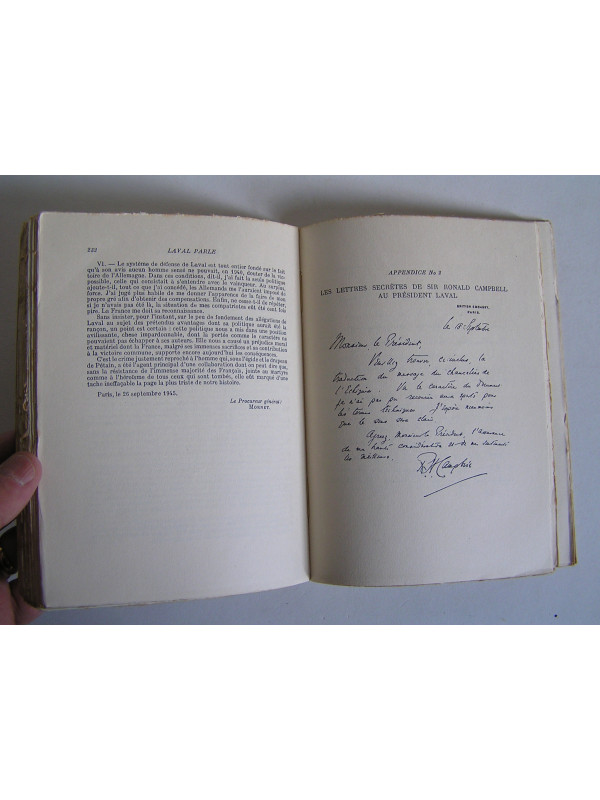 222 LAVAL PARLE
VI. — Le système de défense de Laval est tout entier fondé sur le fait
qu'à son avis aucun homme sensé ne pouvait, en 1940, douter de la vic-
toire de l'Allemagne. Dans ces conditions, dit-il, j'ai choisi la seule politique
possible, celle qui consistait à s'entendre avec le vainqueur. Au surplus,
ajoute-t-il, ce que j'ai concédé, les Allemands me l'auraient imposé de
force. J'ai jugé plus habile de me donner l'apparence de la faire de mon
propre gré afin d'obtenir des compensations. Enfin, ne cesse-t-il de répéter,
si je n'avais pas été là, la situation de mes compatriotes eût été bien pire.
La France me doit sa reconnaissance.
Sans insister, pour l'instant, sur le peu de fondement des allégations de
Laval au sujet des prétendus avantages dont sa politique aurait été la
rançon, un point est certain : cette politique nous mis dans une condition
avilissante, chose impardonnable, dont la portée comme le caractère ne
pouvaient pas échapper à ses auteurs. Elle nous a causé un préjudice moral
et matériel dont la France, malgré ses immenses sacrifices et sa contribution
à la victoire commune, supporte encore aujourd'hui les conséquences.
C'est le crime justement reproché à l'homme qui, sous l'égide et le drapeau
de Pétain, a été l'agent principal d'une collaboration dont on peut dire que,
sans la résistance de l'immense majorité des Français, jointe au martyre
comme à l'héroïsme de tous ceux qui sont tombés, elle eût marqué d'une
tache ineffaçable la page la plus triste de notre histoire.
Paris, le 25 septembre 1945.
Le Procureur général:
MORNET.
APPENDICE No 2
LES LETTRES SECRÈTES DE SIR RONALD CAMPBELL
AU PRÉSIDENT LAVAL
BRITISH EMBASSY,
PARIS.
le
Monsieur le Président,
Veuillez trouver ci-inclus la
traduction du message du chancelier de
l'Echiquier. Vu le caractère du
je n'ai pas pu recourir aux
les termes techniques. J'espère néanmoins
que le sens sera clair.
Agréez, Monsieur le Président, l'assurance
de ma haute considération et de mes sentiments
les meilleurs.
R H Campbell